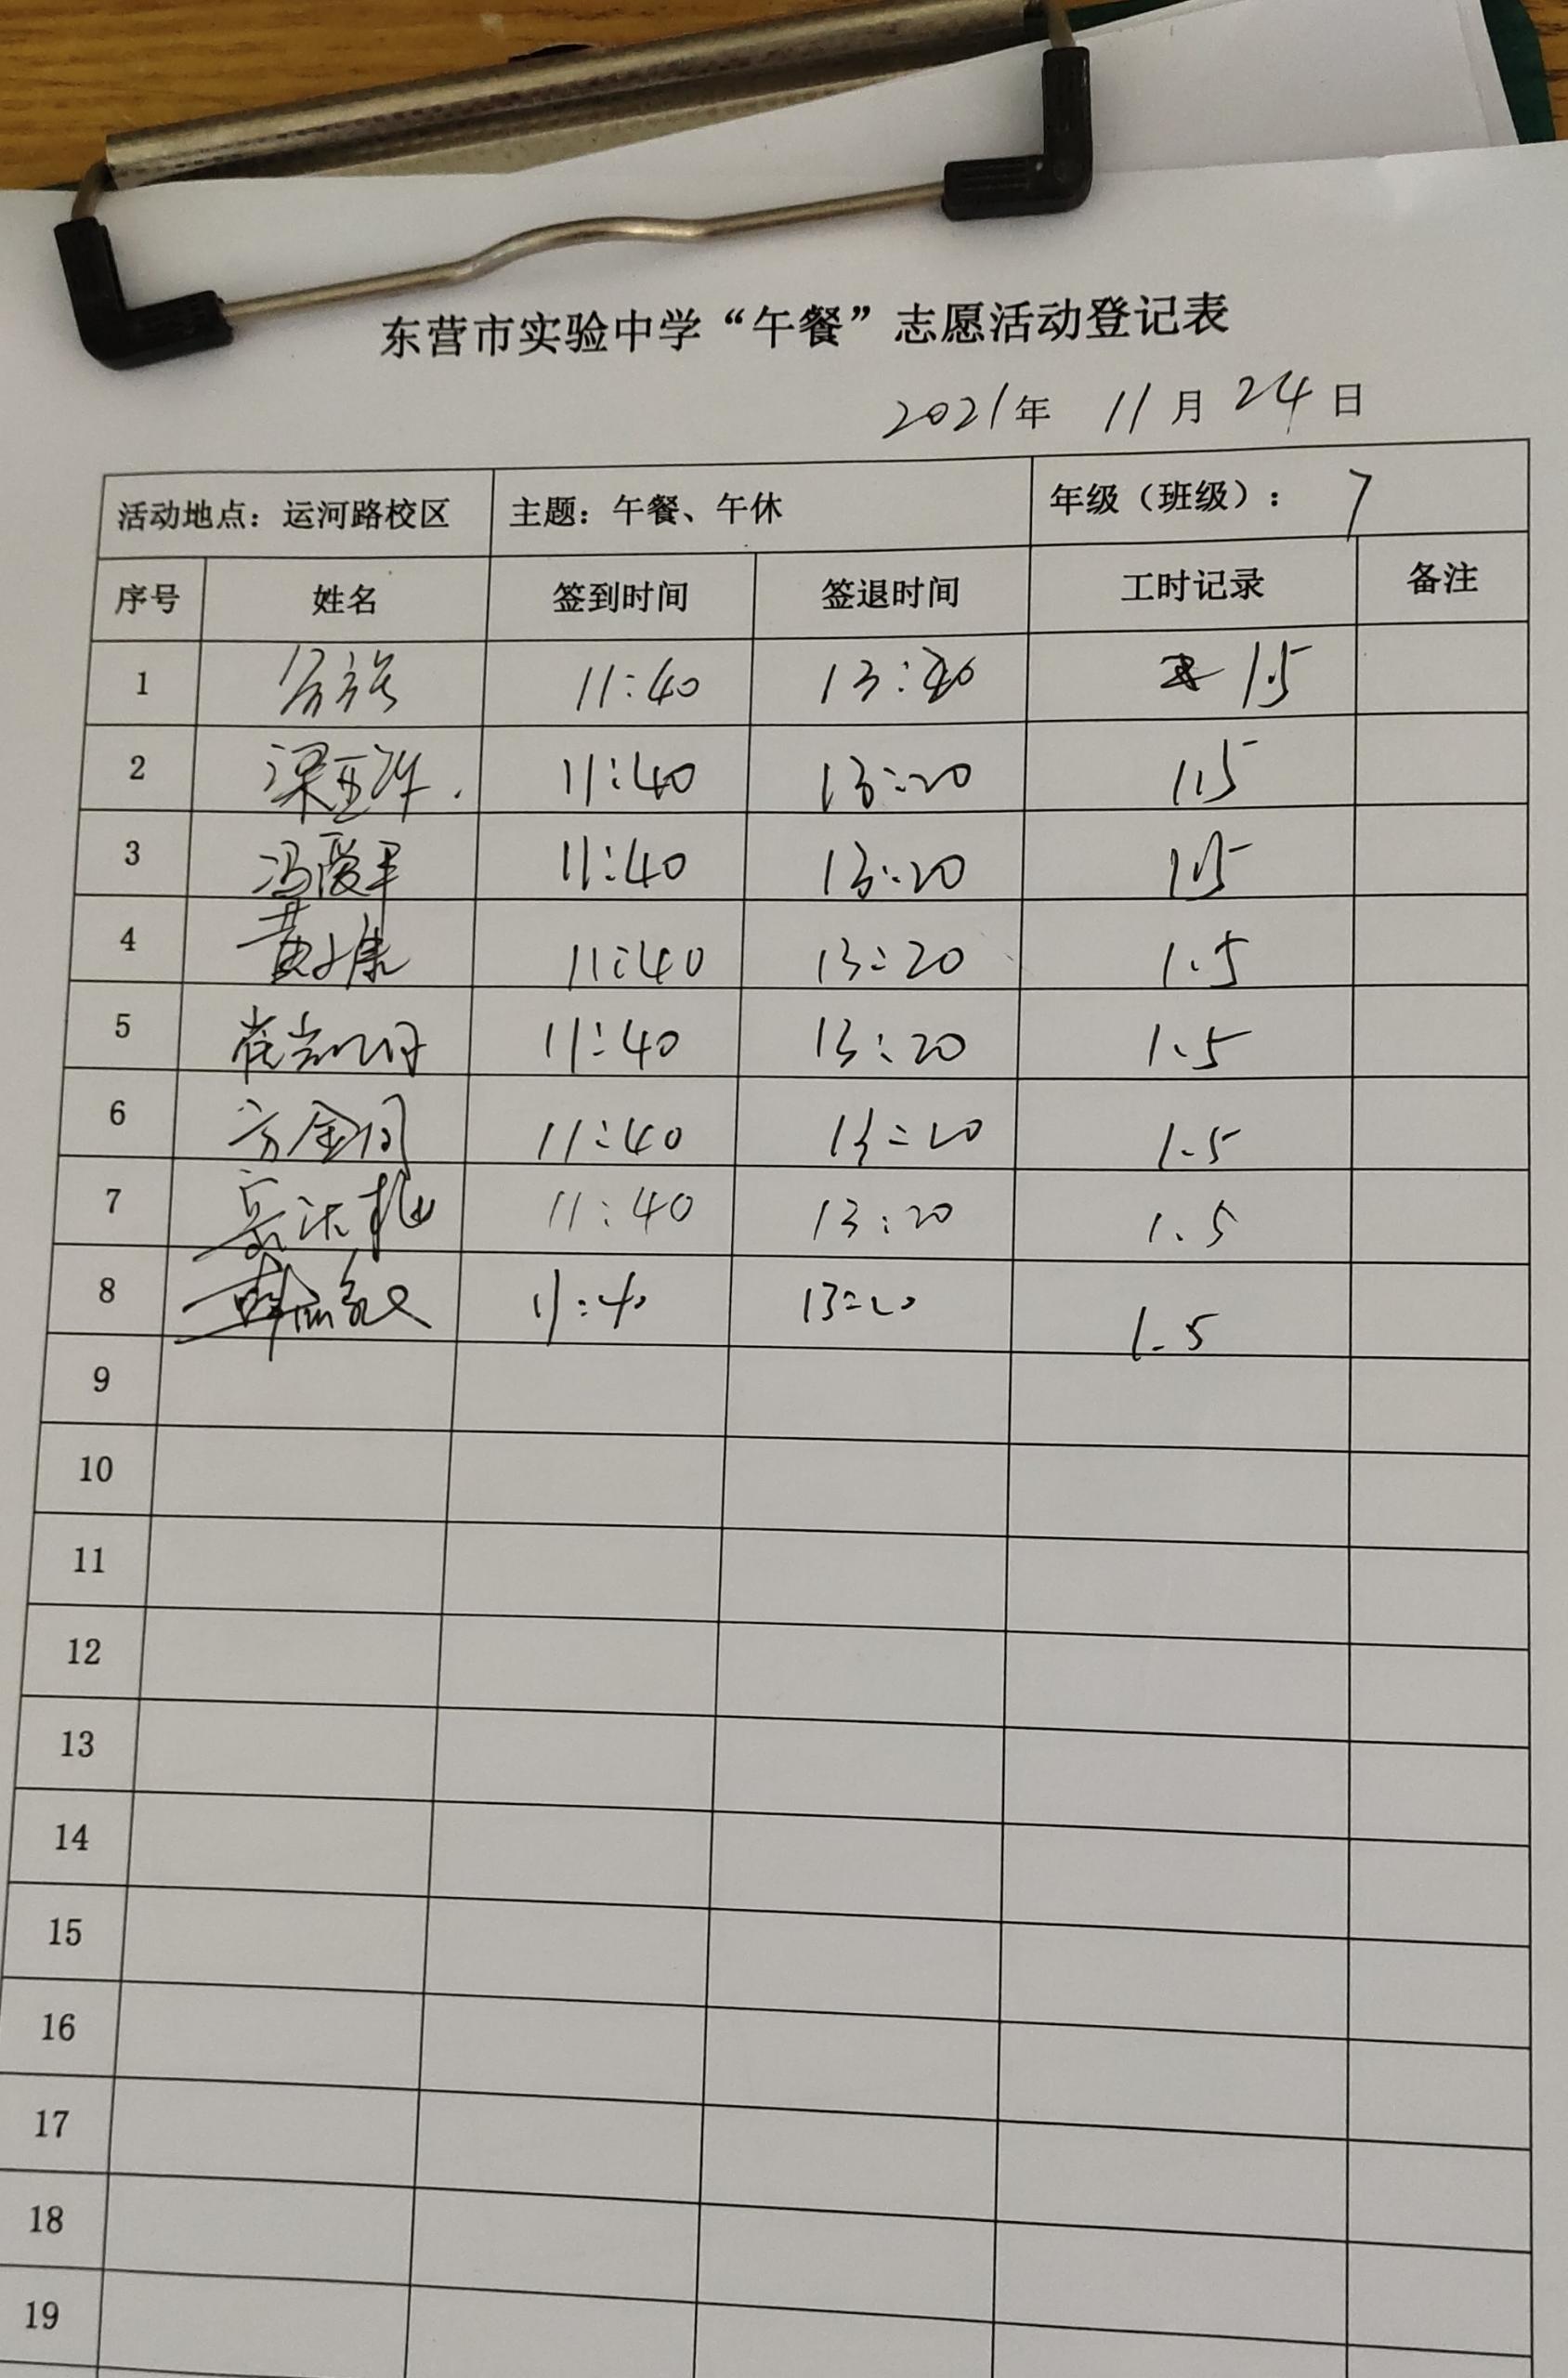 东营市实验中学“午餐”志愿活动登记表
2021年 11月 24日
活动地点：运河路校区 主题：午餐、午休 年级（班级）：7
序号 姓名 签到时间 签退时间 工时记录 备注
1 11:40 13:20 1.5
2 11:40 13:20 1.5
3 11:40 13:20 1.5
4 11:40 13:20 1.5
5 11:40 13:20 1.5
6 11:40 13:20 1.5
7 11:40 13:20 1.5
8 11:40 13:20 1.5
9
10
11
12
13
14
15
16
17
18
19